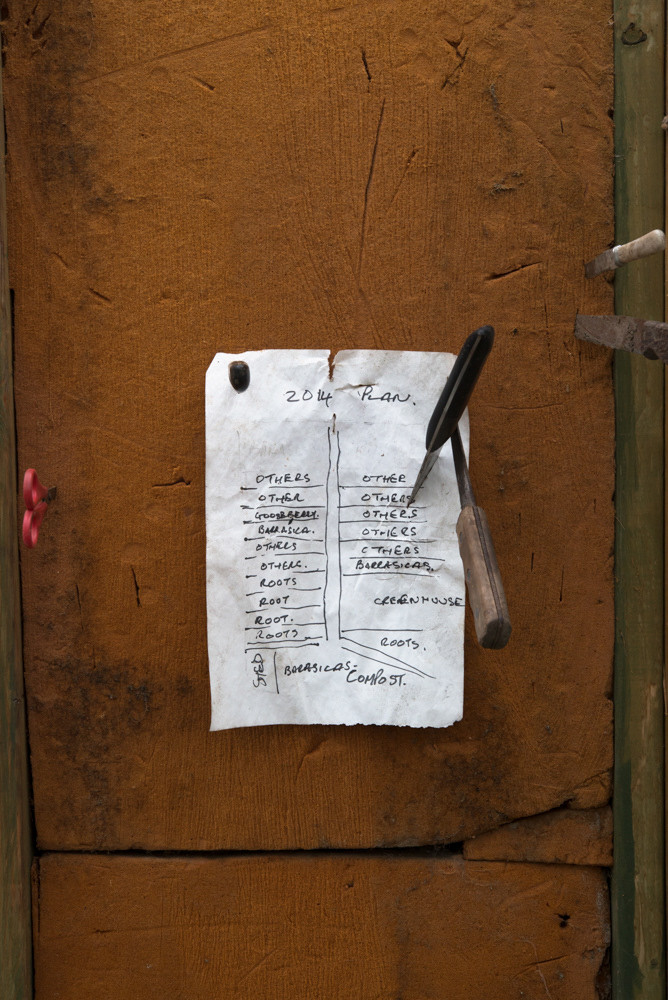 2014 PLAN.
OTHERS
OTHER
GOOSEBERRY.
BARRASICA.
OTHERS
OTHERS.
ROOTS
ROOT
ROOT.
ROOTS
SHED
BARASICAS-
OTHER
OTHERS
OTHERS
OTHERS
OTHERS
BARRASICAS,
GREENHOUSE
ROOTS.
COMPOST.